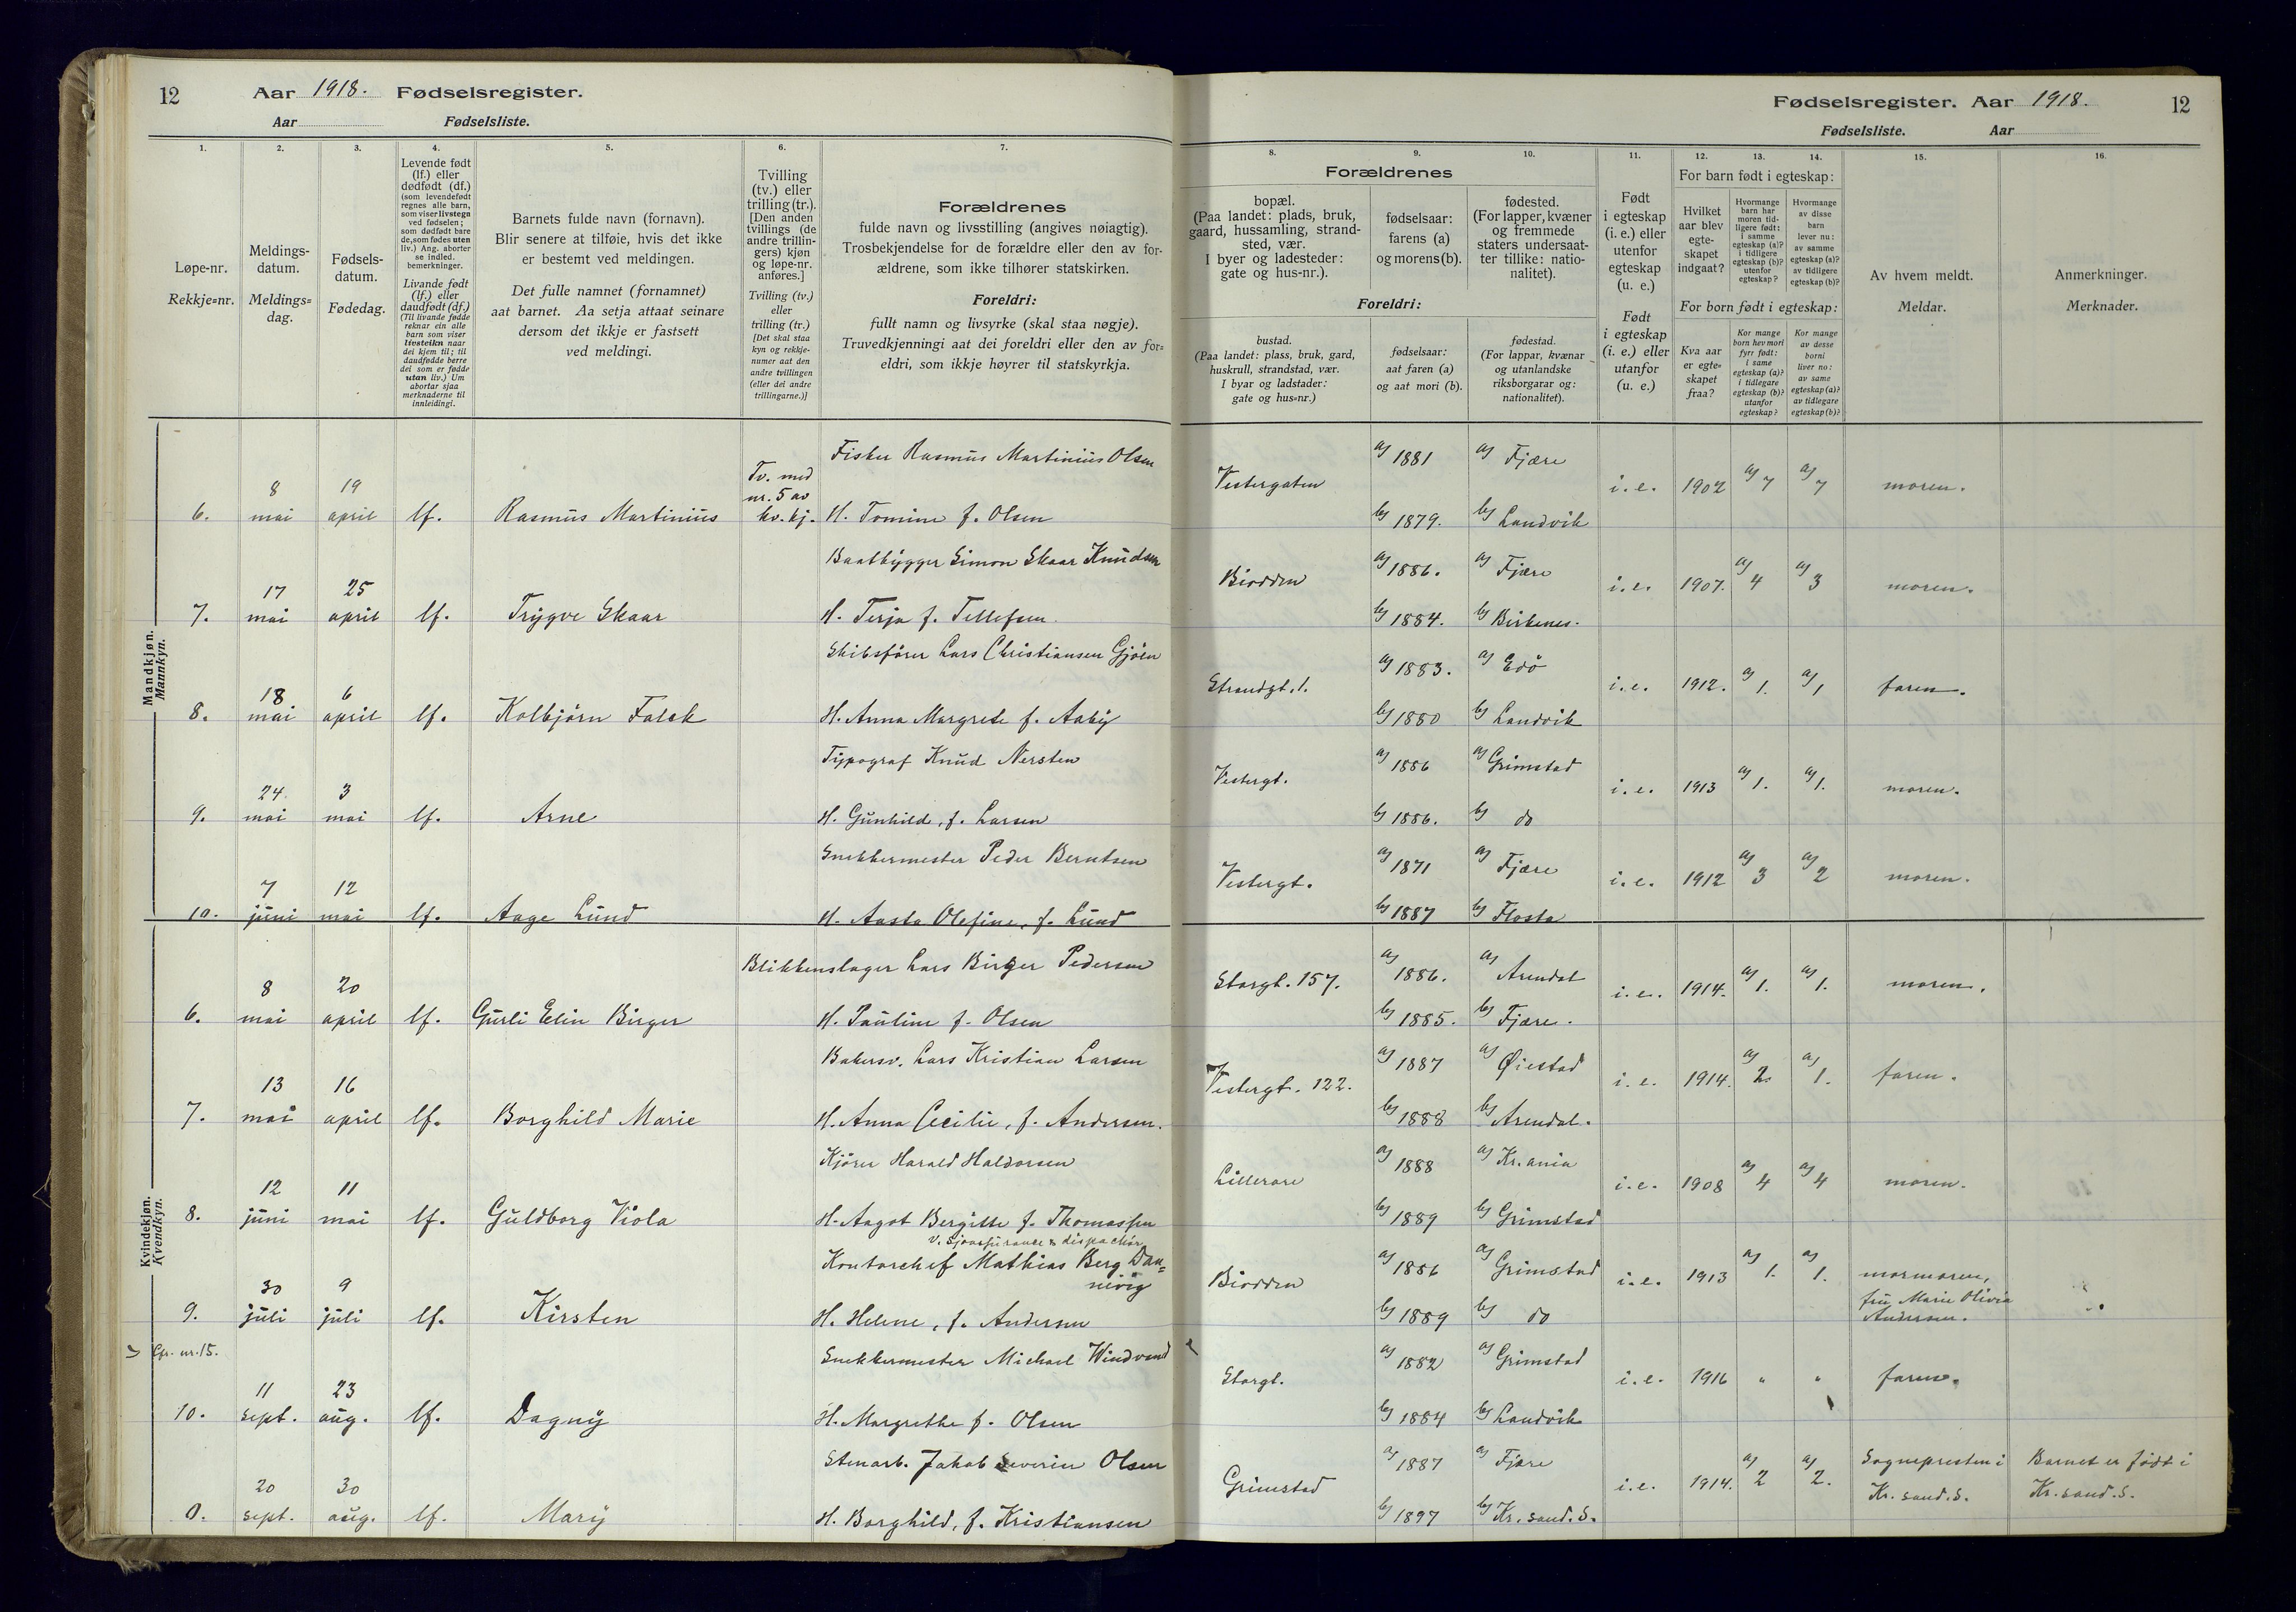 12
Aar 1918. Fødselsregister.
Aar Fødselsliste.
1. 2. 3. 4. 5. 6. 7.
Løpe-nr.
Rekkje=nr.
Meldings-
datum.
Meldings=
dag.
Fødsels-
datum.
Fødedag.
Levende født
(lf.) eller
dødfødt (df.)
(som levendefødt
regnes alle barn,
som viser livstegn
ved fødselen;
som dødfødt bare
de, som fødes uten
liv.) Ang. aborter
se indled.
bemerkninger.
Livande født
(lf.) eller
daudfødt (df.)
(Til livande fødde
reknar ein alle
barn som viser
livsteikn naar
dei kjem til; til
daudfødde berre
dei som er fødde
utan liv.) Um
abortar sjaa
merknaderne til
innleidingi.
Barnets fulde navn (fornavn).
Blir senere at tilføie, hvis det ikke
er bestemt ved meldingen.
Det fulle namnet (fornamnet)
aat barnet. Aa setja attaat seinare
dersom det ikkje er fastsett
ved meldingi.
Tvilling
(tv.) eller
trilling (tr.).
[Den anden
tvillings (de
andre trillin-
gers) kjøn
og løpe-nr.
anføres.]
Tvilling (tv.)
eller
trilling (tr.)
[Det skal staa
kyn og rekkje-
numer aat den
andre tvillingen
(eller dei andre
trillingarne.)]
Forældrenes
fulde navn og livsstilling (angives nøiagtig).
Trosbekjendelse for de forældre eller den av for-
ældrene, som ikke tilhører statskirken.
Foreldri:
fullt namn og livsyrke (skal staa nøgje).
Truvedkjenningi aat dei foreldri eller den av for=
eldri, som ikkje høyrer til statskyrkja.
Mandkjøn.
Mannkyn.
Fisker Rasmus Martinius Olsen
8 19 Tv. med
nr. 5 av
6. mai april lf. Rasmus Martinius kv. kj. H. Tomine f. Olsen
Baatbygger Simon Skaar Knudsen
17 25
7. mai april lf. Trygve Skaar H. Terja f. Tellefsen
Skibsfører Lars Christiansen Gjöen
18 6
8. mai april lf. Kolbjørn Falck H. Anna Margrete f. Aaby
Typograf Knud Nersten
24. 3
9. mai mai lf. Arne H. Gunhild, f. Larsen
Snekkermester Peder Berntsen
7 12
10. juni mai lf. Aage Lund H. Aasta Olefine, f. Lund
Kvindekjøn.
Kvendkyn.
Blikkenslager Lars Birger Pedersen
8 20
6. mai april lf. Gurli Elin Birger H. Pauline f. Olsen
Bakersv. Lars Kristian Larsen
13 16
7. mai april lf. Borghild Marie H. Anna Cecilie, f. Andersen.
Kjörer Harald Haldorsen
12 11
8. juni mai lf. Guldborg Viola H. Aagot Bergitte f. Thomassen
v. Sjöassurance & dispachör
Kontorchef Mathias Berg Dan=
nevig
30 9
9. juli juli lf. Kirsten H. Helene, f. Andersen
Cfr. nr. 15. Snekkermester Michael Windvand
11 23
10. sept. aug. lf. Dagny H. Margrethe f. Olsen
Stenarb. Jakob Severin Olsen
20 30
0. sept. aug. lf. Mary H. Borghild, f. Kristiansen
Fødselsregister. Aar 1918. 12
Fødselsliste. Aar
8. 9. 10. 11. 12. 13. 14. 15. 16.
Forældrenes
bopæl.
(Paa landet: plads, bruk,
gaard, hussamling, strand-
sted, vær.
I byer og ladesteder:
gate og hus-nr.).
fødselsaar:
farens (a)
og morens (b).
fødested.
(For lapper, kvæner
og fremmede
staters undersaat-
ter tillike: natio-
nalitet).
Foreldri:
bustad.
(Paa landet: plass, bruk, gard,
huskrull, strandstad, vær.
I byar og ladstader:
gate og hus=nr.)
fødselsaar:
aat faren (a)
og aat mori (b).
fødestad.
(For lappar, kvænar
og utanlandske
riksborgarar og:
nationalitet).
Født
i egteskap
(i. e.) eller
utenfor
egteskap
(u. e.)
Født
i egteskap
(i. e.) eller
utanfor
(u. e.)
For barn født i egteskap:
Hvilket
aar blev
egte-
skapet
indgaat?
Hvormange
barn har
moren tid-
ligere født:
i samme
egteskap (a)?
i tidligere
egteskap (b)?
utenfor
egteskap?
Hvormange
av disse
barn
lever nu:
av samme
egteskap (a)?
av tidligere
egteskap (b)?
For born født i egteskap:
Kva aar
er egte=
skapet
fraa?
Kor mange
born hev mori
fyrr født:
i same
egteskap (a)?
i tidlegare
egteskap (b)?
utanfor
egteskap?
Kor mange
av desse
borni
liver no:
av same
egteskap (a)?
av tidlegare
egteskap (b)?
Av hvem meldt.
Meldar.
Anmerkninger.
Merknader.
a) 1881 a) Fjære
Vestergaten i. e. 1902 a) 7 a) 7 moren.
b) 1879. b) Landvik
a) 1886. a) Fjære
Biodden i. e. 1907. a) 4 a) 3 moren.
b) 1884. b) Birkenes.
a) 1883. a) Edö
Strandgt. 1. i. e. 1912. a) 1. a) 1 faren.
b) 1880 b) Landvik
a) 1886 a) Grimstad
Vestergt. i. e. 1913 a) 1. a) 1. moren.
b) 1886. b) do
a) 1871 a) Fjære
Vestergt. i. e. 1912 a) 3 a) 2 moren.
b) 1887 b) Flosta
a) 1886. a) Arendal
Storgt. 157. i. e. 1914. a) 1. a) 1. moren.
b) 1885. b) Fjære.
a) 1887 a) Øiestad
Vestergt. 122. i. e. 1914. a) 2. a) 1. faren.
b) 1888 b) Arendal.
a) 1888 a) Kr.ania
Lillerore i. e. 1908 a) 4 a) 4 moren.
b) 1889 b) Grimstad
a) 1886 a) Grimstad
Biodden i. e. 1913 a) 1. a) 1. mormoren,
b) 1889 b) do fru Marie Olivia
Andersen.
a) 1882 a) Grimstad
Storgt. i. e. 1916 " " faren.
b) 1884 b) Landvik
a) 1887 a) Fjære Sognepresten i Barnet er født i
Grimstad i. e. 1914. a) 2 a) 2. Kr.sand.S. Kr.sand.S.
b) 1897 b) Kr.sand.S.